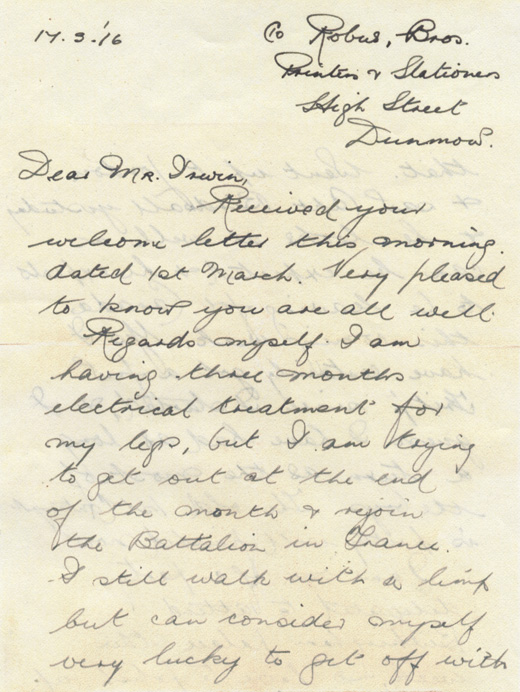 17.3.'16
Co Robus, Bros.
Printers & Stationers
High Street
Dunmow.
Dear Mr. Irwin,
Received your
welcome letter this morning.
dated 1st March. Very pleased
to know you are all well.
Regards myself I am
having three months
electrical treatment for
my legs, but I am trying
to get out at the end
of the month & rejoin
the Battalion in France.
I still walk with a limp
but can consider myself
very lucky to get off with